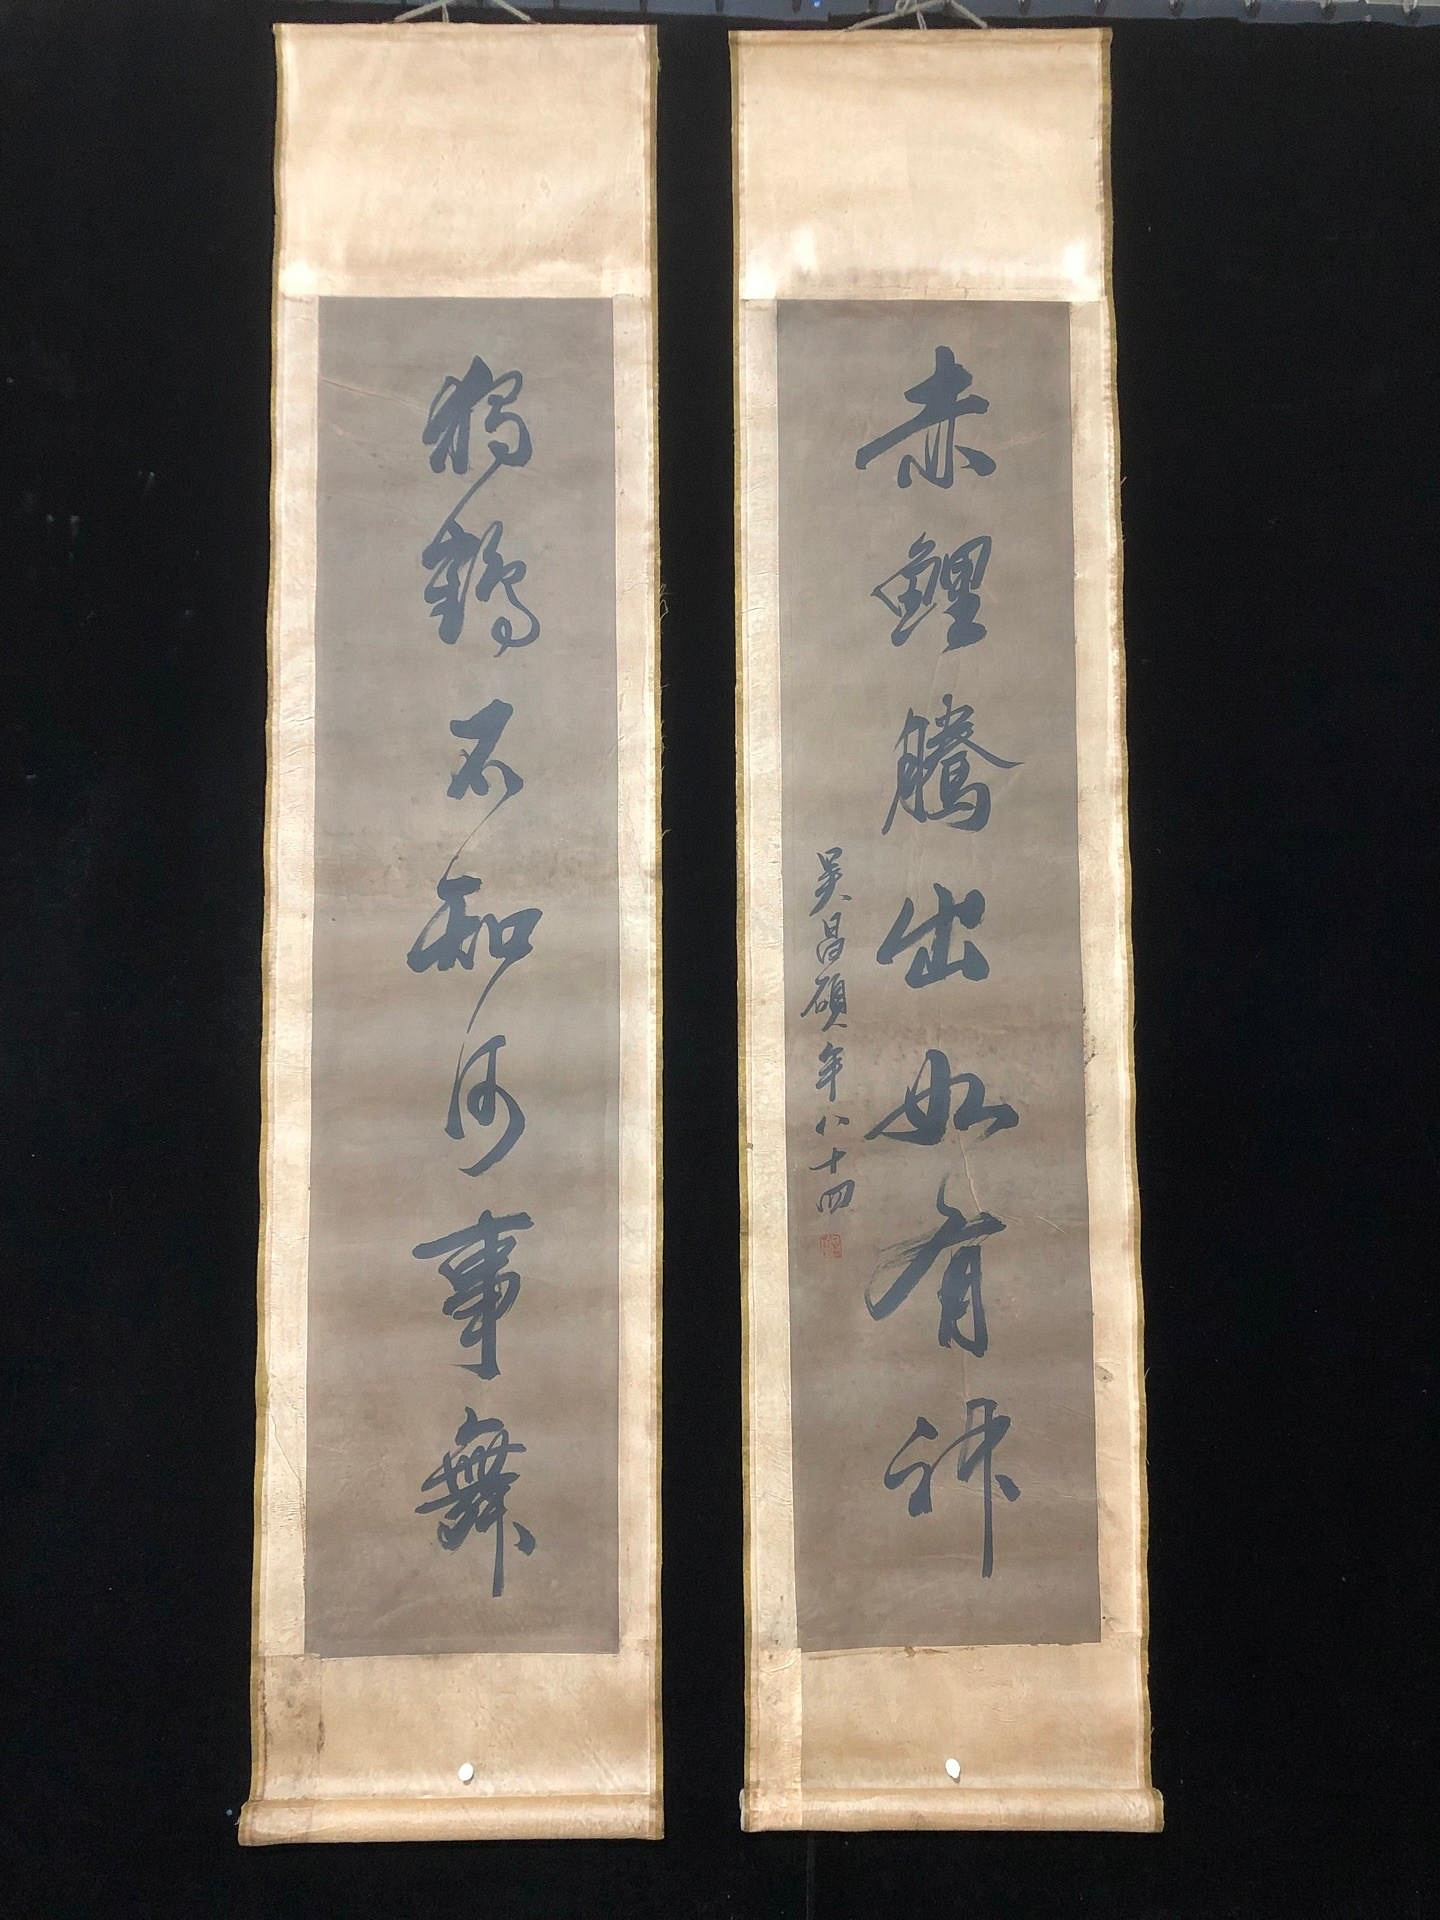 赤鲤騰出如有神
吴昌碩年八十四
獨鶴不知何事舞